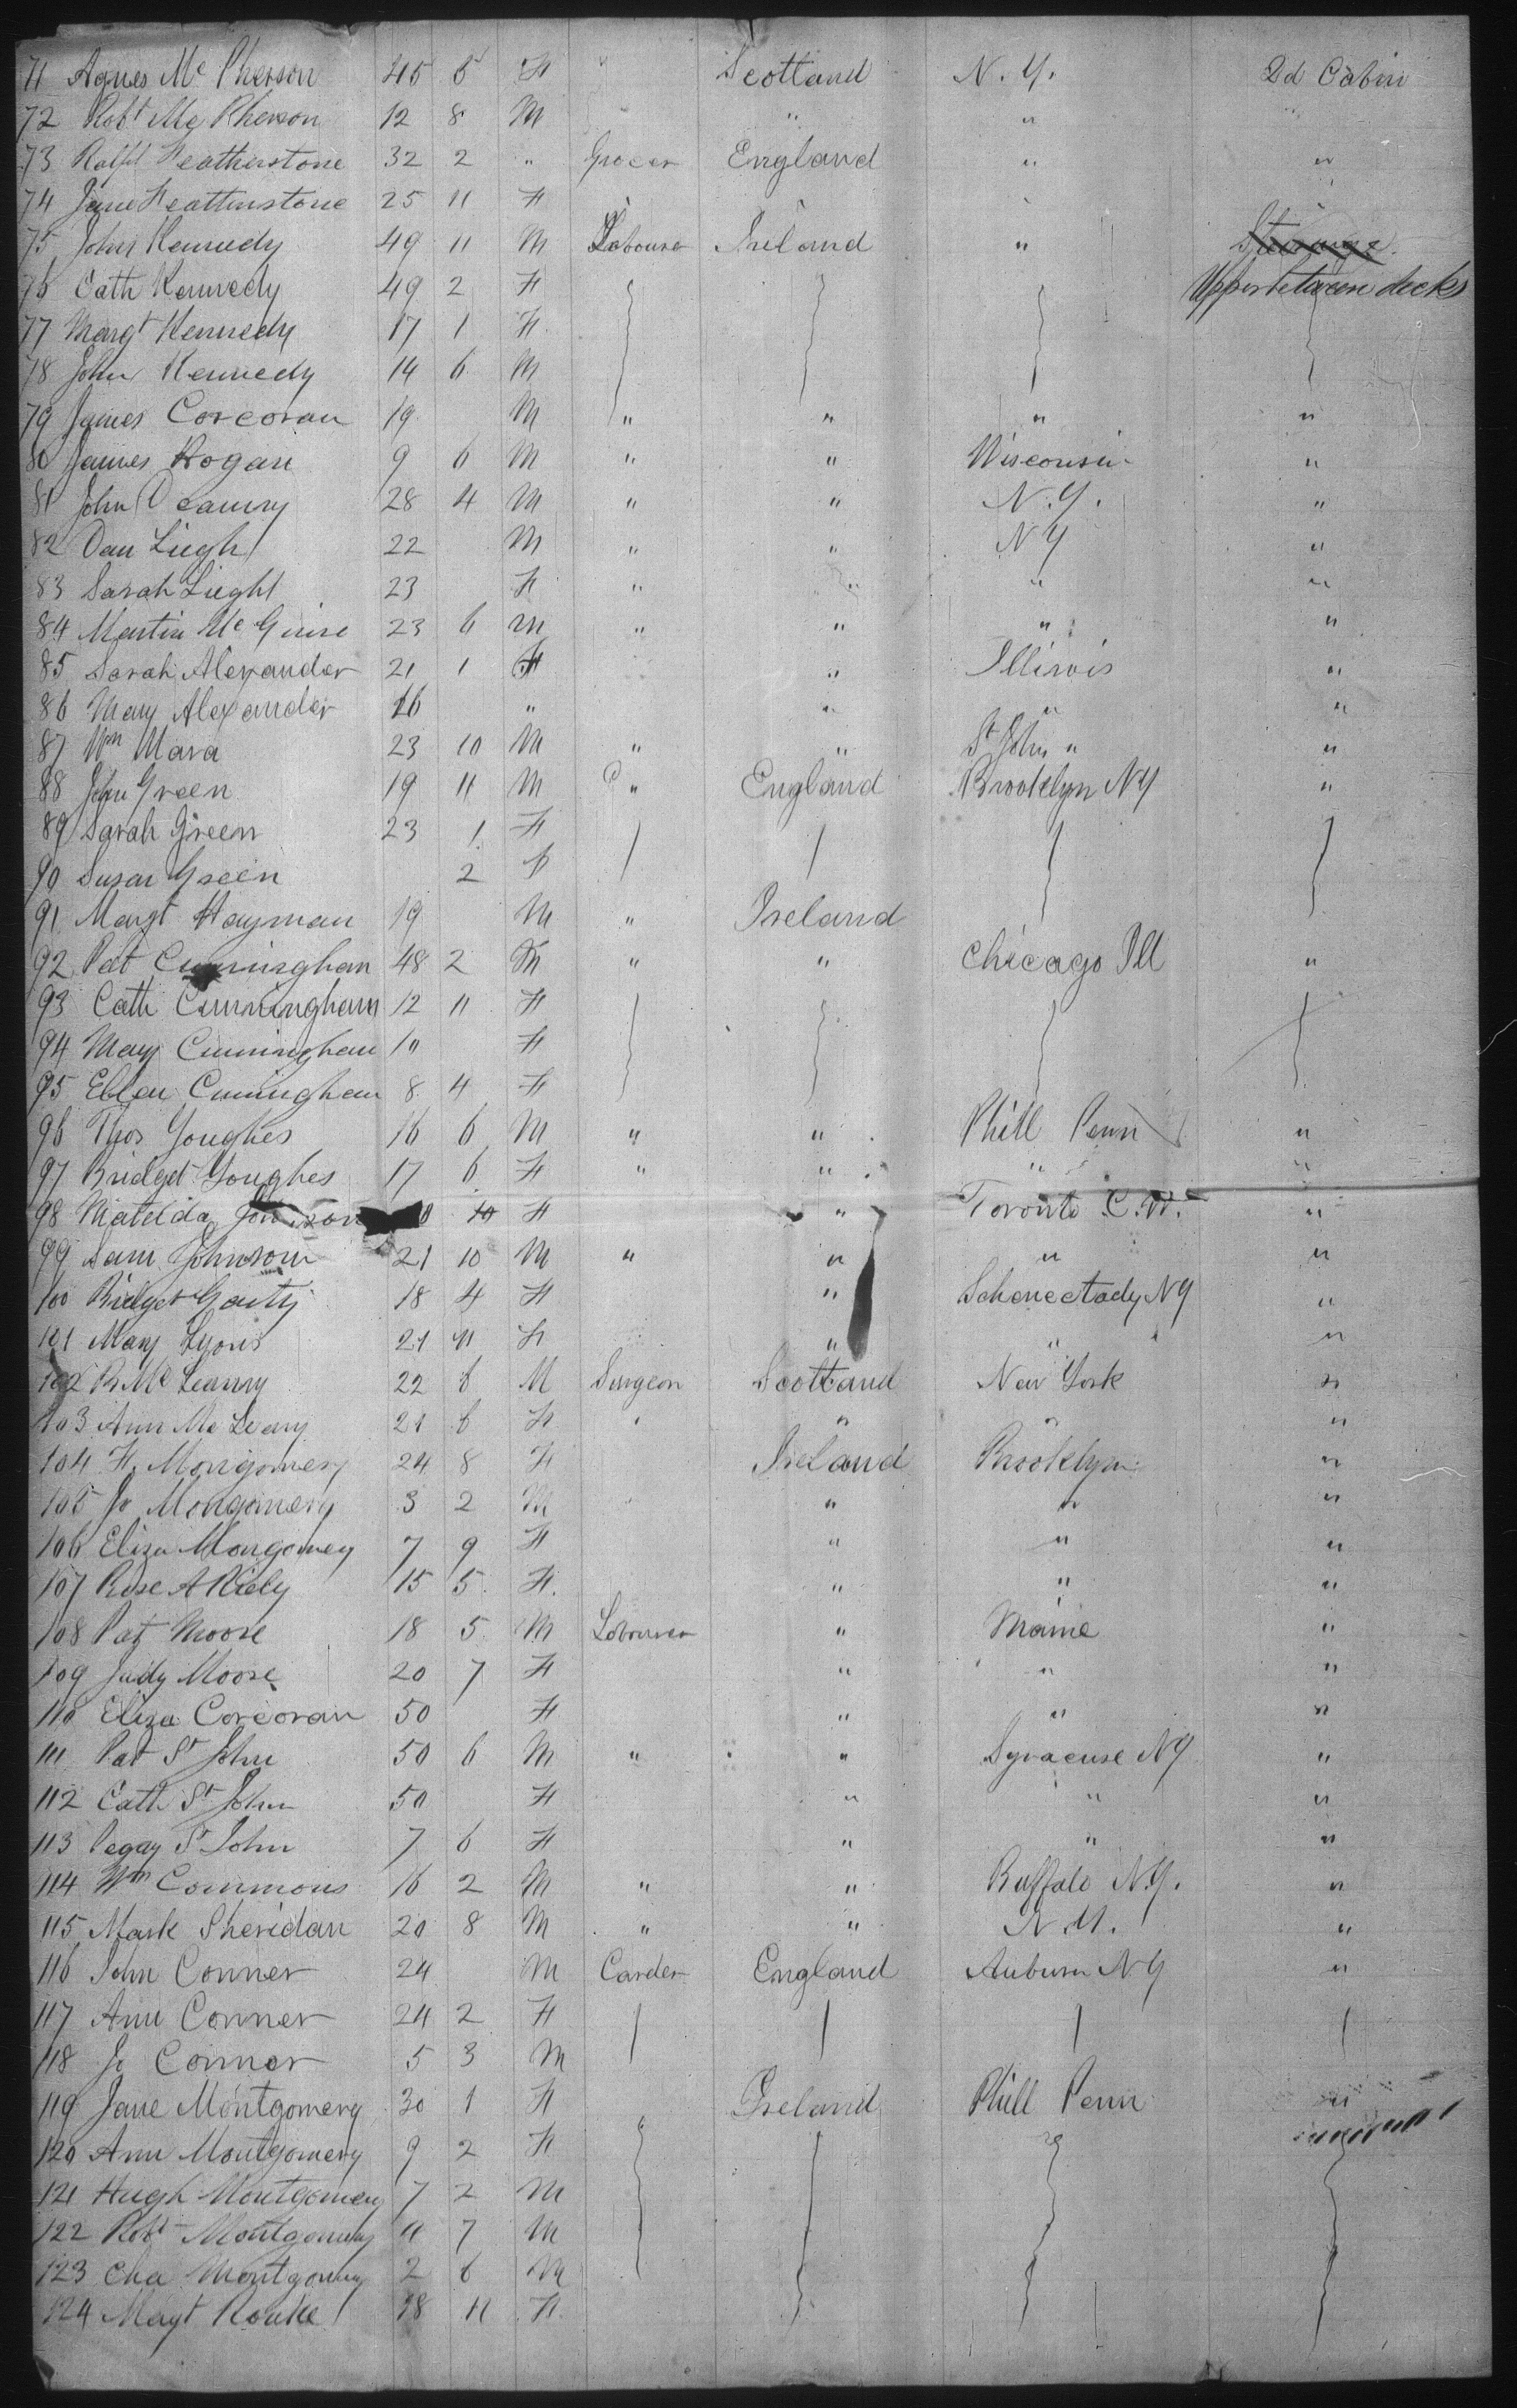 71 Agnes Mc Pherson 45 5 F " Scotland N. Y. 2d Cabin
72 Robt Mc Pherson 12 8 M " " "
73 Ralph Featherstone 32 2 " Grocer England " "
74 Jane Featherstone 25 11 F " "
75 John Kennedy 49 11 M Labourer Ireland " Steerage
76 Cath Kennedy 49 2 F Upper between decks
77 Margt Kennedy 17 1 F
78 John Kennedy 14 6 M
79 James Corcoran 19 M " " " "
80 James Hogan 9 6 M " " Wisconsin "
81 John 28 4 M " " N. Y. "
82 Dan Liegh 22 M " " N Y "
83 Sarah Lieght 23 F " " " "
84 Martin Mc Guire 23 6 M " " " "
85 Sarah Alexander 21 1 F " Illinois "
86 Mary Alexander 16 " " " "
87 Wm Mara 23 10 M " " St John " "
88 John Green 19 11 M " England Brooklyn NY "
89 Sarah Green 23 1 F
90 Susan Green 2 F
91 Margt Hayman 19 M " Ireland
92 Pat Cunningham 48 2 M " " Chicago Ill "
93 Cath Cunningham 12 11 F
94 Mary Cunningham 10 F
95 Ellen Cuningham 8 4 F
96 Thos Youghes 16 6 M " " Phill Penn "
97 Bridget Youghes 17 6 F " " " "
98 Matilda 10 F " Toronto C.W. "
99 Sam Johnson 21 10 M " " " "
100 Bridget Gouty 18 4 F " Schenectady NY "
101 Mary Lyons 21 11 F " " "
102 R Mc Leanry 22 6 M Surgeon Scotland New York "
103 Ann Mc Leary 21 6 F " " " "
104 H. Mongomery 24 8 F Ireland Brooklyn "
105 Jo Mongomery 3 2 M " " "
106 Eliza Mongomey 7 9 F " " "
107 Rose A Riely 15 5 F. " " "
108 Pat Moore 18 5 M Labourer " Maine "
109 Judy Moore 20 7 F " " "
110 Eliza Corcoran 50 F " " "
111 Pat St John 50 6 M " " Syracuse NY "
112 Cath St John 50 F " " "
113 Pegay St John 7 6 F " " "
114 Wm Commons 16 2 M " " Buffalo N.Y. "
115 Mark Sheridan 20 8 M " " N. Y. "
116 John Conner 24 M Carder England Auburn NY "
117 Ann Conner 24 2 F
118 Jo Conner 5 3 M
119 Jane Montgomery 30 1 F Ireland Phill Penn "
120 Ann Montgomery 9 2 F
121 Hugh Montgomery 7 2 M
122 Robt Montgomery 4 7 M
123 Cha Montgomery 2 6 M
124 Magt Rourke 38 11 F.